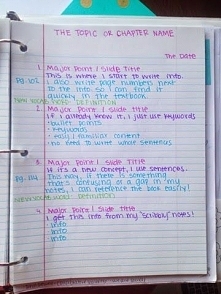 THE TOPIC OR CHAPTER NAME
The Date
1. Major Point / Slide Title
This is where I start to write info.
Pg. 102 I also write page numbers next
to the info so I can find it
quickly in the textbook.
NEW VOCAB WORD: DEFINITION
2. Major Point / Slide Title
If I already know it, I just use keywords
-bullet points
-keywords
-easily / familiar content
-no need to write whole sentences
3. Major Point / Slide Title
If it's a new concept, I use sentences.
Pg. 114 This way, if there is something
that's confusing or a gap in my
notes, I can reference the book easily!
NEW VOCAB WORD: DEFINITION
4. Major Point / Slide Title
I get this info from my "scribbly" notes!
-info
-info
-info